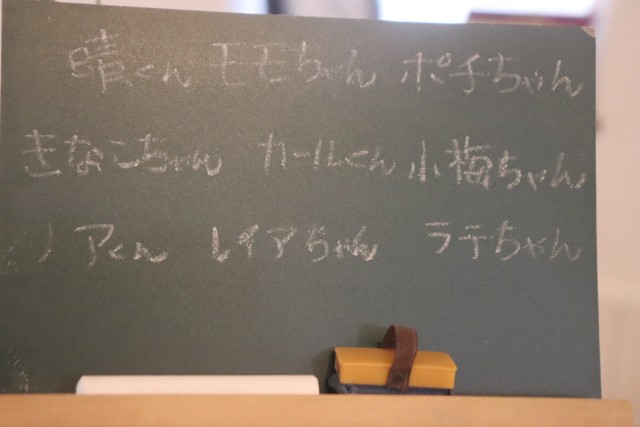 晴くん モモちゃん ポチちゃん
きなこちゃん カールくん 小梅ちゃん
ノアくん レイアちゃん ラテちゃん